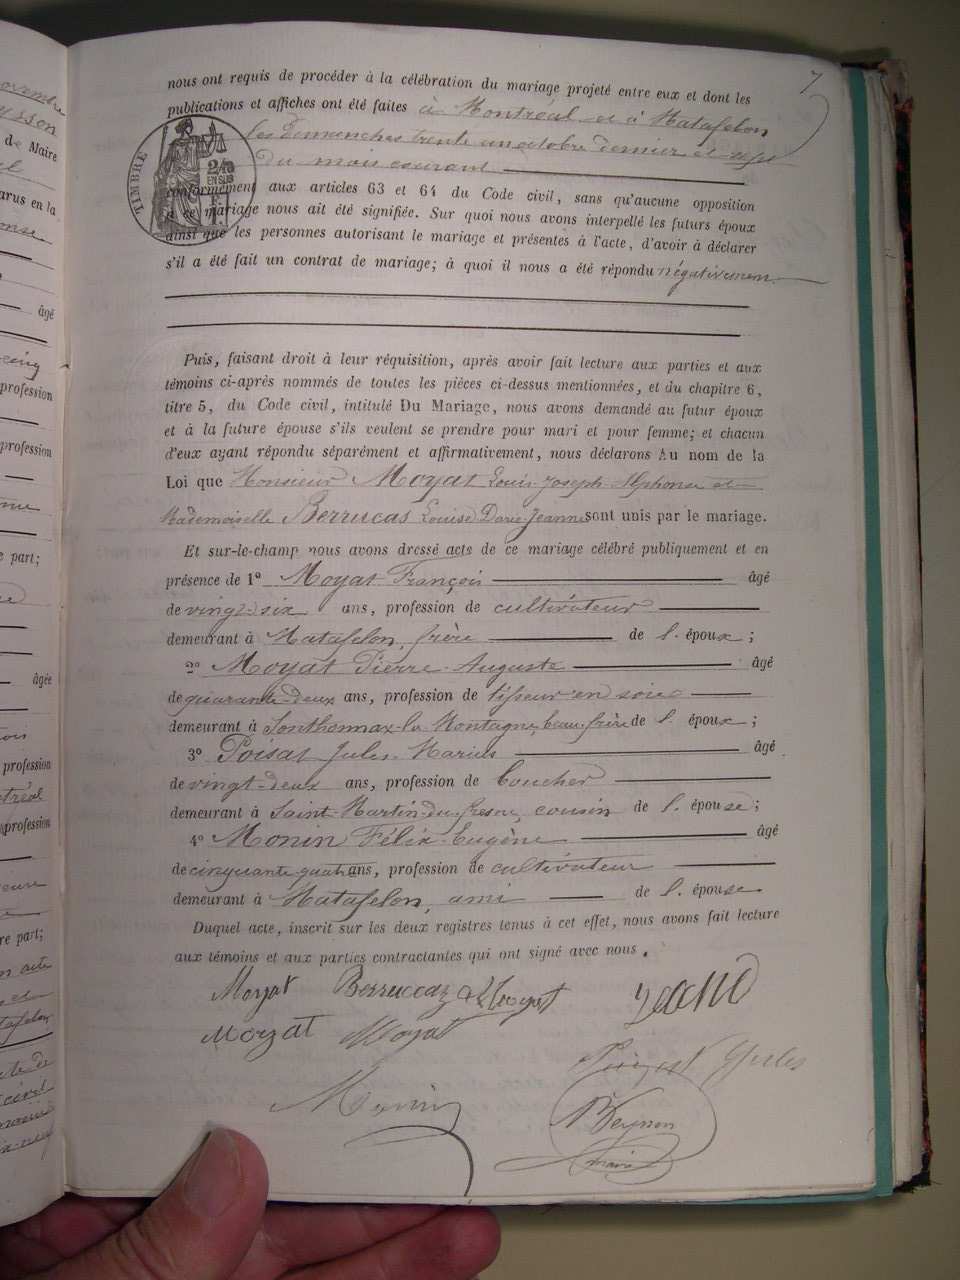 7
nous ont requis de procéder à la célébration du mariage projeté entre eux et dont les
publications et affiches ont été faites à Montréal et à Matafelon
les Dimanches trente un octobre dernier et sept
du mois courant
conformément aux articles 63 et 64 du Code civil, sans qu'aucune opposition
à ce mariage nous ait été signifiée. Sur quoi nous avons interpellé les futurs époux
ainsi que les personnes autorisant le mariage et présentes à l'acte, d'avoir à déclarer
s'il a été fait un contrat de mariage; à quoi il nous a été répondu négativement
TIMBRE
2/10
EN SUS
Puis, faisant droit à leur réquisition, après avoir fait lecture aux parties et aux
témoins ci-après nommés de toutes les pièces ci-dessus mentionnées, et du chapitre 6,
titre 5, du Code civil, intitulé Du Mariage, nous avons demandé au futur époux
et à la future épouse s'ils veulent se prendre pour mari et pour femme; et chacun
d'eux ayant répondu séparément et affirmativement, nous déclarons Au nom de la
Loi que Monsieur Moyat Louis-Joseph-Alphonse et
Mademoiselle Berrucas Louise Darie Jeanne sont unis par le mariage.
Et sur-le-champ nous avons dressé acte de ce mariage célébré publiquement et en
présence de 1° Moyat François âgé
de vingt-six ans, profession de cultivateur
demeurant à Matafelon, frère de l'époux;
2° Moyat Pierre-Auguste âgé
de quarante-deux ans, profession de tisseur en soie
demeurant à Sonthonnax-la-Montagne, beau-frère de l'époux;
3° Poisat Jules-Marius âgé
de vingt-deux ans, profession de boucher
demeurant à Saint-Martin-du-fresne, cousin de l'épouse;
4° Monin Félix-Eugène âgé
de cinquante quatre ans, profession de cultivateur
demeurant à Matafelon, ami de l'épouse
Duquel acte, inscrit sur les deux registres tenus à cet effet, nous avons fait lecture
aux témoins et aux parties contractantes qui ont signé avec nous.
Moyat Berruccaz
Moyat Moyat
Jules
Monin
maire
ovembre
de Maire
arus en la
âgé
profession
profession
e part;
âgée
profession
tréal
profession
re part;